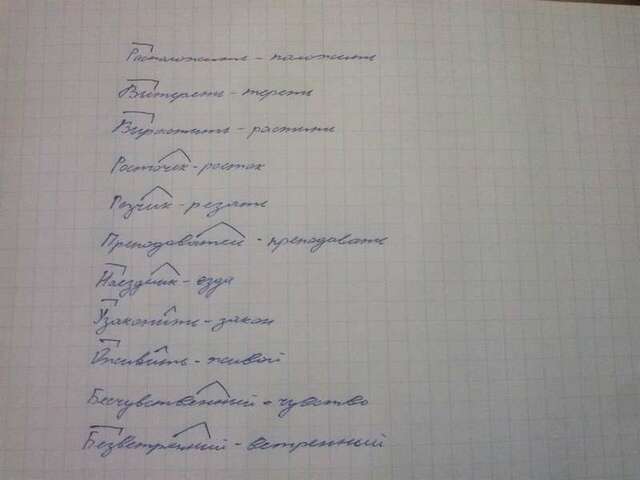 Расположить - положить
Вытереть - тереть
Вырастить - растить
Росточек - росток
Резчик - резать
Преподаватель - преподавать
Наездник - езда
Узаконить - закон
Оживить - живой
Бесчувственный - чувство
Безветренный - ветренный